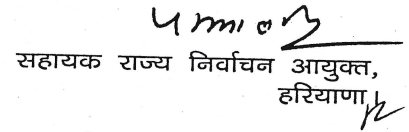 सहायक राज्य निर्वाचन आयुक्त,
हरियाणा